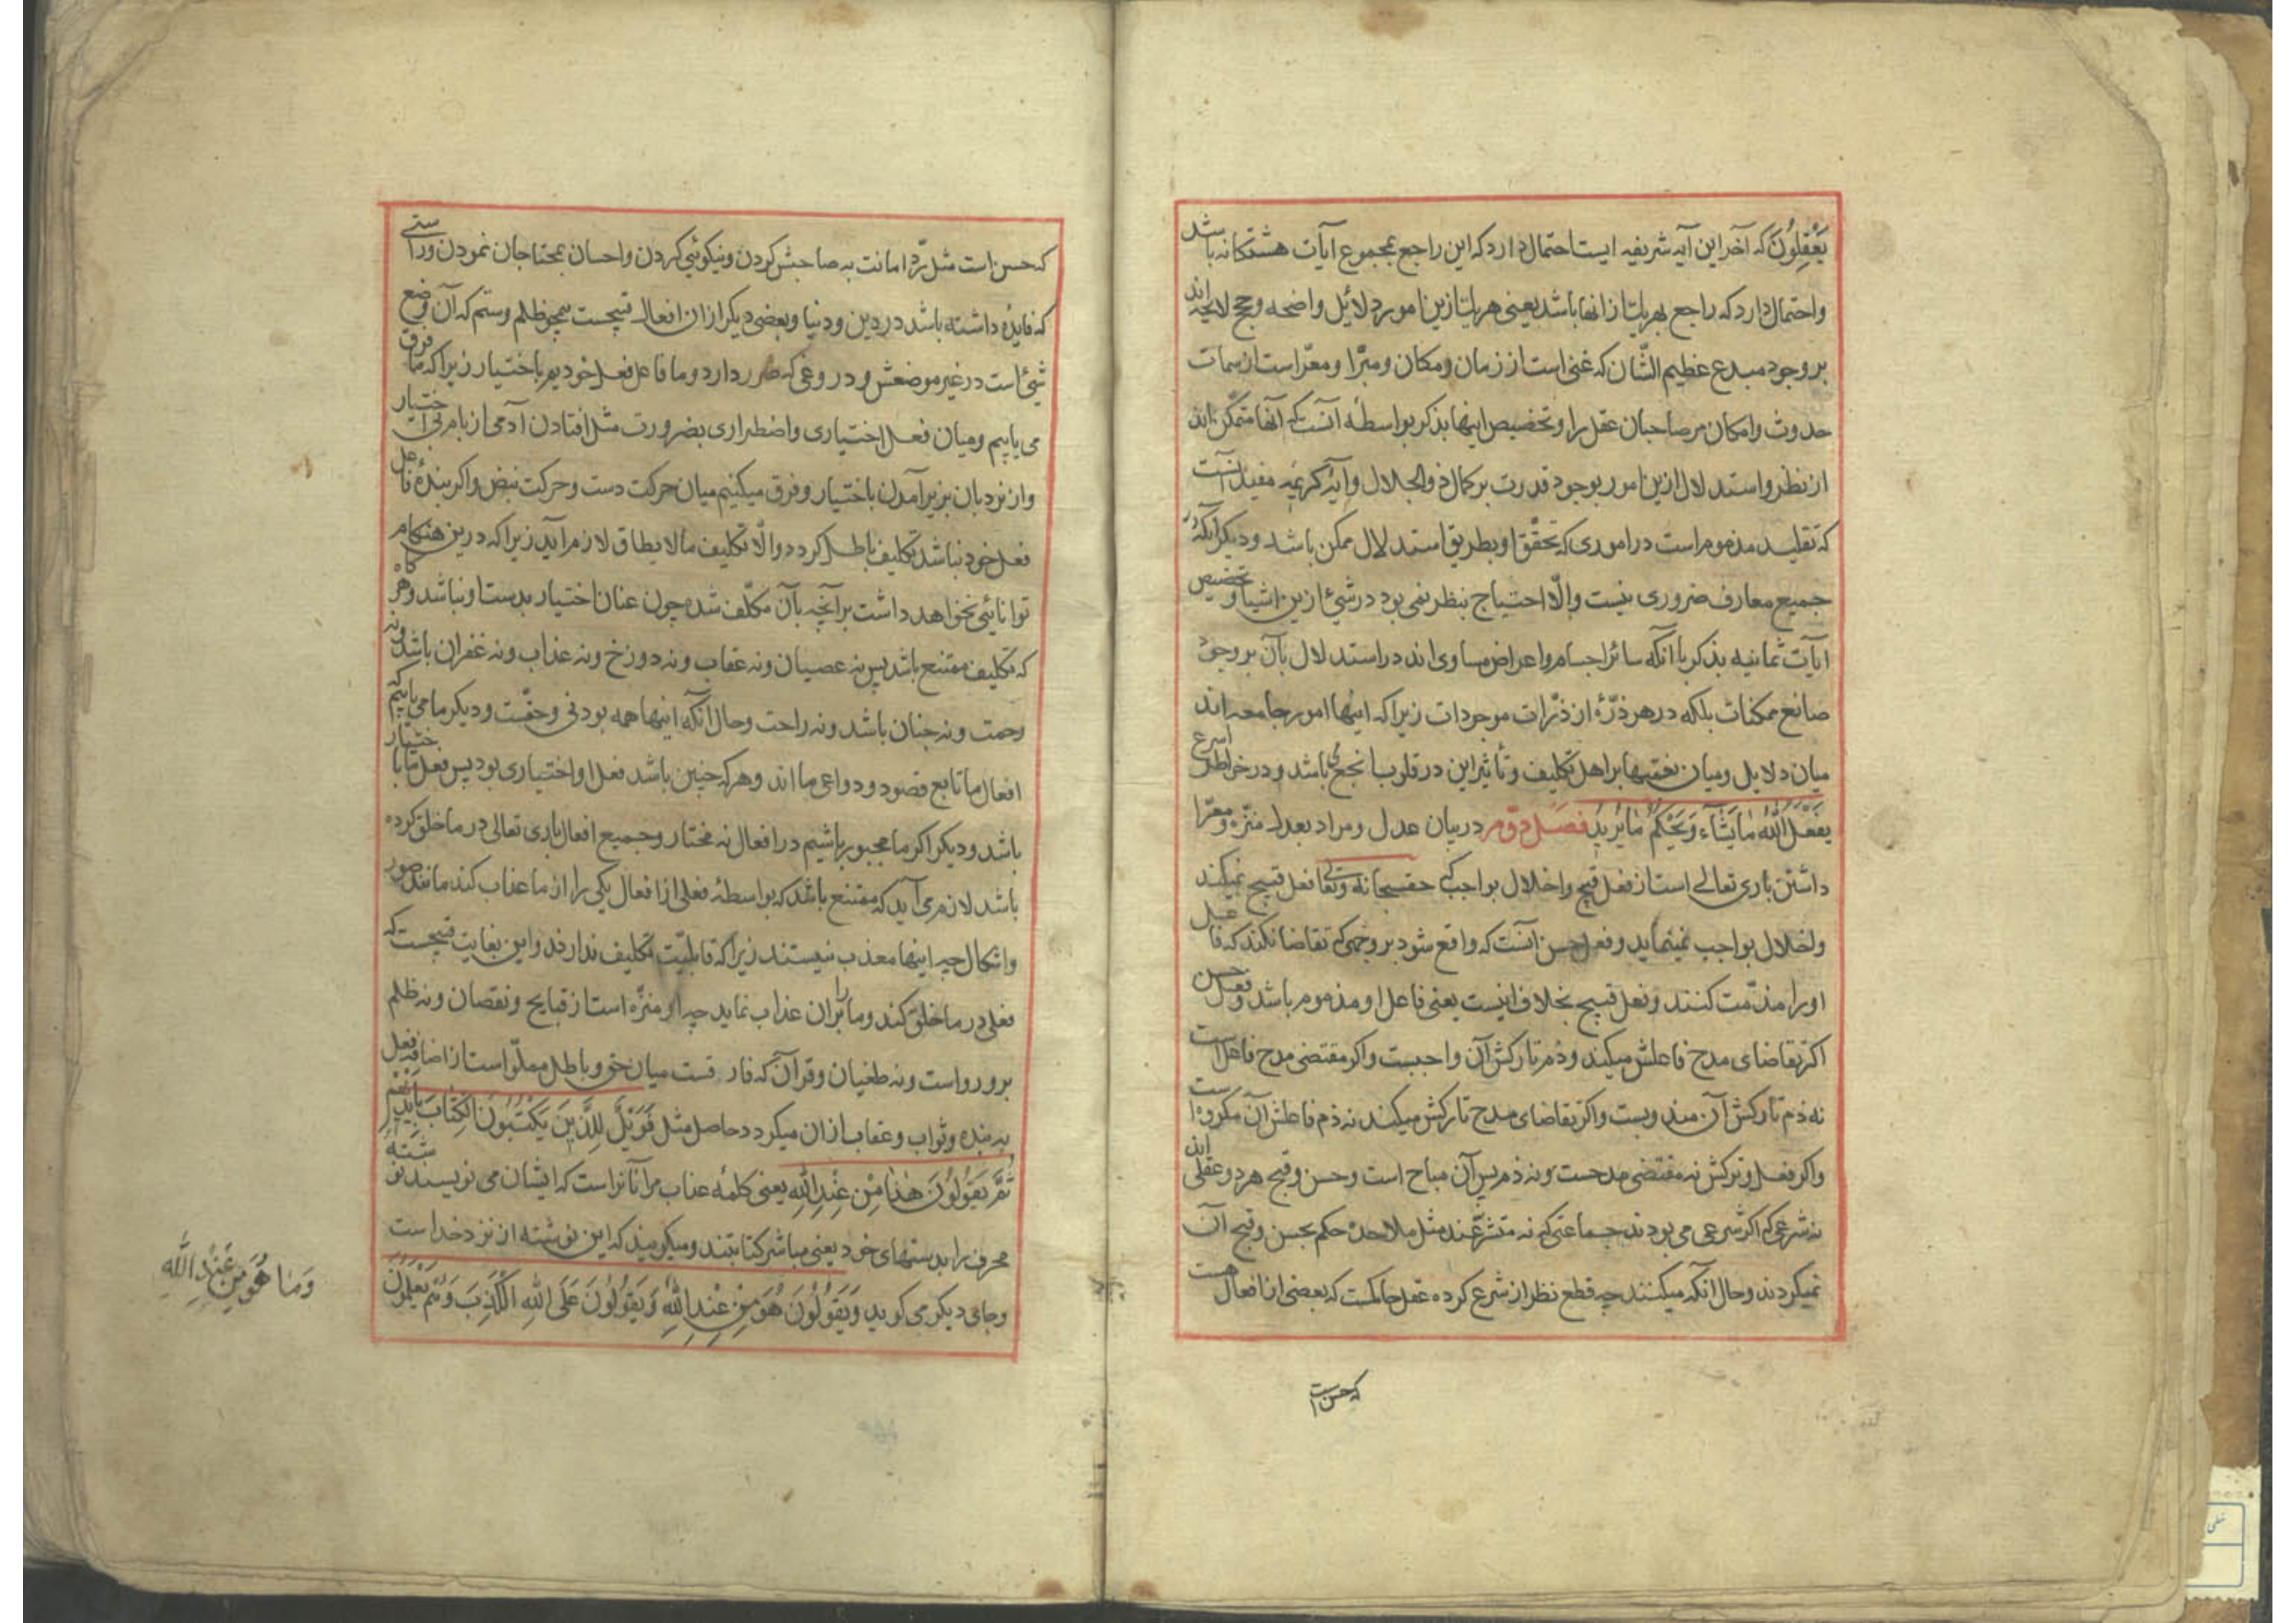 یَعْقِلُونَ که آخر این آیه شریفه ایست احتمال دارد که این راجع بمجموع آیات هشتکانه باشد
واحتمال دارد که راجع بهریك از انها باشد یعنی هریك ازین امور دلائل واضحه وحجج لایحه اند
بر وجود مبدع عظیم الشّان که غنی است از زمان ومکان ومبرّا ومعرّا است از سمات
حدوث وامکان مر صاحبان عقل را وتخصیص اینها بذکر بواسطه آنست که آنها متمکّن اند
از نظر واستدلال ازین امور بوجود قدرت بر کمال ذو الجلال وآیهٔ کریمه مفید آنست
که تقلید مذموم است در اموری که تحقّق او بطریق استدلال ممکن باشد ودیکر آنکه در
جمیع معارف ضروری نیست والّا احتیاج بنظر نمی بود در شئ ازین اشیا وتخصیص
آیات ثمانیه بذکر با آنکه سائر اجسام واعراض مساوی اند در استدلال بآن بر وجود
صانع ممکنات بلکه در هر ذرّهٔ از ذرّات موجودات زیرا که اینها امور جامعه اند
میان دلایل ومیان نعمتها بر اهل تکلیف وتأثیر این در قلوب انجع باشد ودر خواطر اسرع
یفعل اللّه ما یَشآء وَیَحْکُم ما یُریدُ فصل دوّم در بیان عدل ومراد بعدل منزّه ومعرّا
داشتن باری تعالی است از فعل قبیح واخلال بواجب که حقسبحانه وتعالی فعل قبیح نمیکند
واخلال بواجب نمینماید وفعل حسن آنست که واقع شود بر وجهی که تقاضا نکند که فاعل
او را مذمّت کنند وفعل قبیح بخلاف اینست یعنی فاعل او مذموم باشد وفعل حسن
اکر تقاضای مدح فاعلش میکند وذم تارکش آن واجبست واکر مقتضی مدح فاعل است
نه ذم تارکش آن مندوبست واکر تقاضای مدح تارکش میکند نه ذم فاعلش آن مکروه است
واکر فعل وترکش نه مقتضی مدحست ونه ذم پس آن مباح است وحسن وقبح هر دو عقلی اند
نه شرعی که اکر شرعی می بودند جماعتی که نه متشرّعند مثل ملاحده حکم بحسن وقبح آن
نمیکردند وحال آنکه میکنند چه قطع نظر از شرع کرده عقل حاکمست که بعضی از افعال هست
که حسن است
که حسن است مثل ردّ امانت به صاحبش کردن ونیکوئی کردن واحسان بمحتاجان نمودن وراستی
که فایده داشته باشد در دین ودنیا وبعضی دیکر از ان افعال قبیحست همچو ظلم وستم که آن وضع
شیئ است در غیر موضعش ودروغی که ضرر دارد وما فاعل فعل خودیم باختیار زیرا که ما فرق
می یابیم ومیان فعل اختیاری واضطراری بضرورت مثل افتادن آدمی از بام بی اختیار
واز نردبان بزیر آمدن باختیار وفرق میکنیم میان حرکت دست وحرکت نبض واکر بندهٔ فاعل
فعل خود نباشد تکلیف باطل کردد والّا تکلیف ما لا یطاق لازم آید زیرا که درین هنکام
توانائی نخواهد داشت بر آنچه بآن مکلّف شده چون عنان اختیار بدست او نباشد وهرکاه
که تکلیف ممتنع باشد پس نه عصیان ونه عقاب ونه دوزخ ونه عذاب ونه غفران باشد ونه
رحمت ونه جنان باشد ونه راحت وحال آنکه اینها همه بودنی وحقّست ودیکر ما می یابیم که
افعال ما تابع قصود ودواعی ما اند وهر که چنین باشد فعل او اختیاری بود پس فعل ما با اختیار
باشد ودیکر اکر ما مجبور باشیم در افعال نه مختار وجمیع افعال باری تعالی در ما خلق کرده
باشد لازم می آید که ممتنع باشد که بواسطهٔ فعلی از افعال یکی را از ما عذاب کند مانند صور
واشکال چه اینها معذب نیستند زیرا که قابلیّت تکلیف ندارند واین بغایت قبیحست که
فعلی در ما خلق کند وما را بر ان عذاب نماید چه او منزّه است از قبایح ونقصان ونه ظلم
برو رواست ونه طغیان وقرآن که فارقست میان حق وباطل مملوّ است از اضافه فعل
به بنده وثواب وعقاب از ان میکردد حاصل مثل فَوَیْلٌ لِلَّذِینَ یَکْتُبُونَ الکِتابَ بِاَیْدِیهِمْ
ثُمَّ یَقُولُونَ هٰذا مِنْ عِنْدِ اللّهِ یعنی کلمهٔ عذاب مر آنانراست که ایشان می نویسند نوشتهٔ
محرف را بدستهای خود یعنی مباشر کتابتند ومیکویند که این نوشته از نزد خداست
وجای دیکر می کوید وَیَقُولُونَ هُوَ مِنْ عِنْدِ اللّهِ وَیَقُولُونَ عَلَی اللّهِ الْکَذِبَ وَهُمْ یَعْلَمُونَ
وَما هُوَ مِنْ عِنْدِ اللّهِ